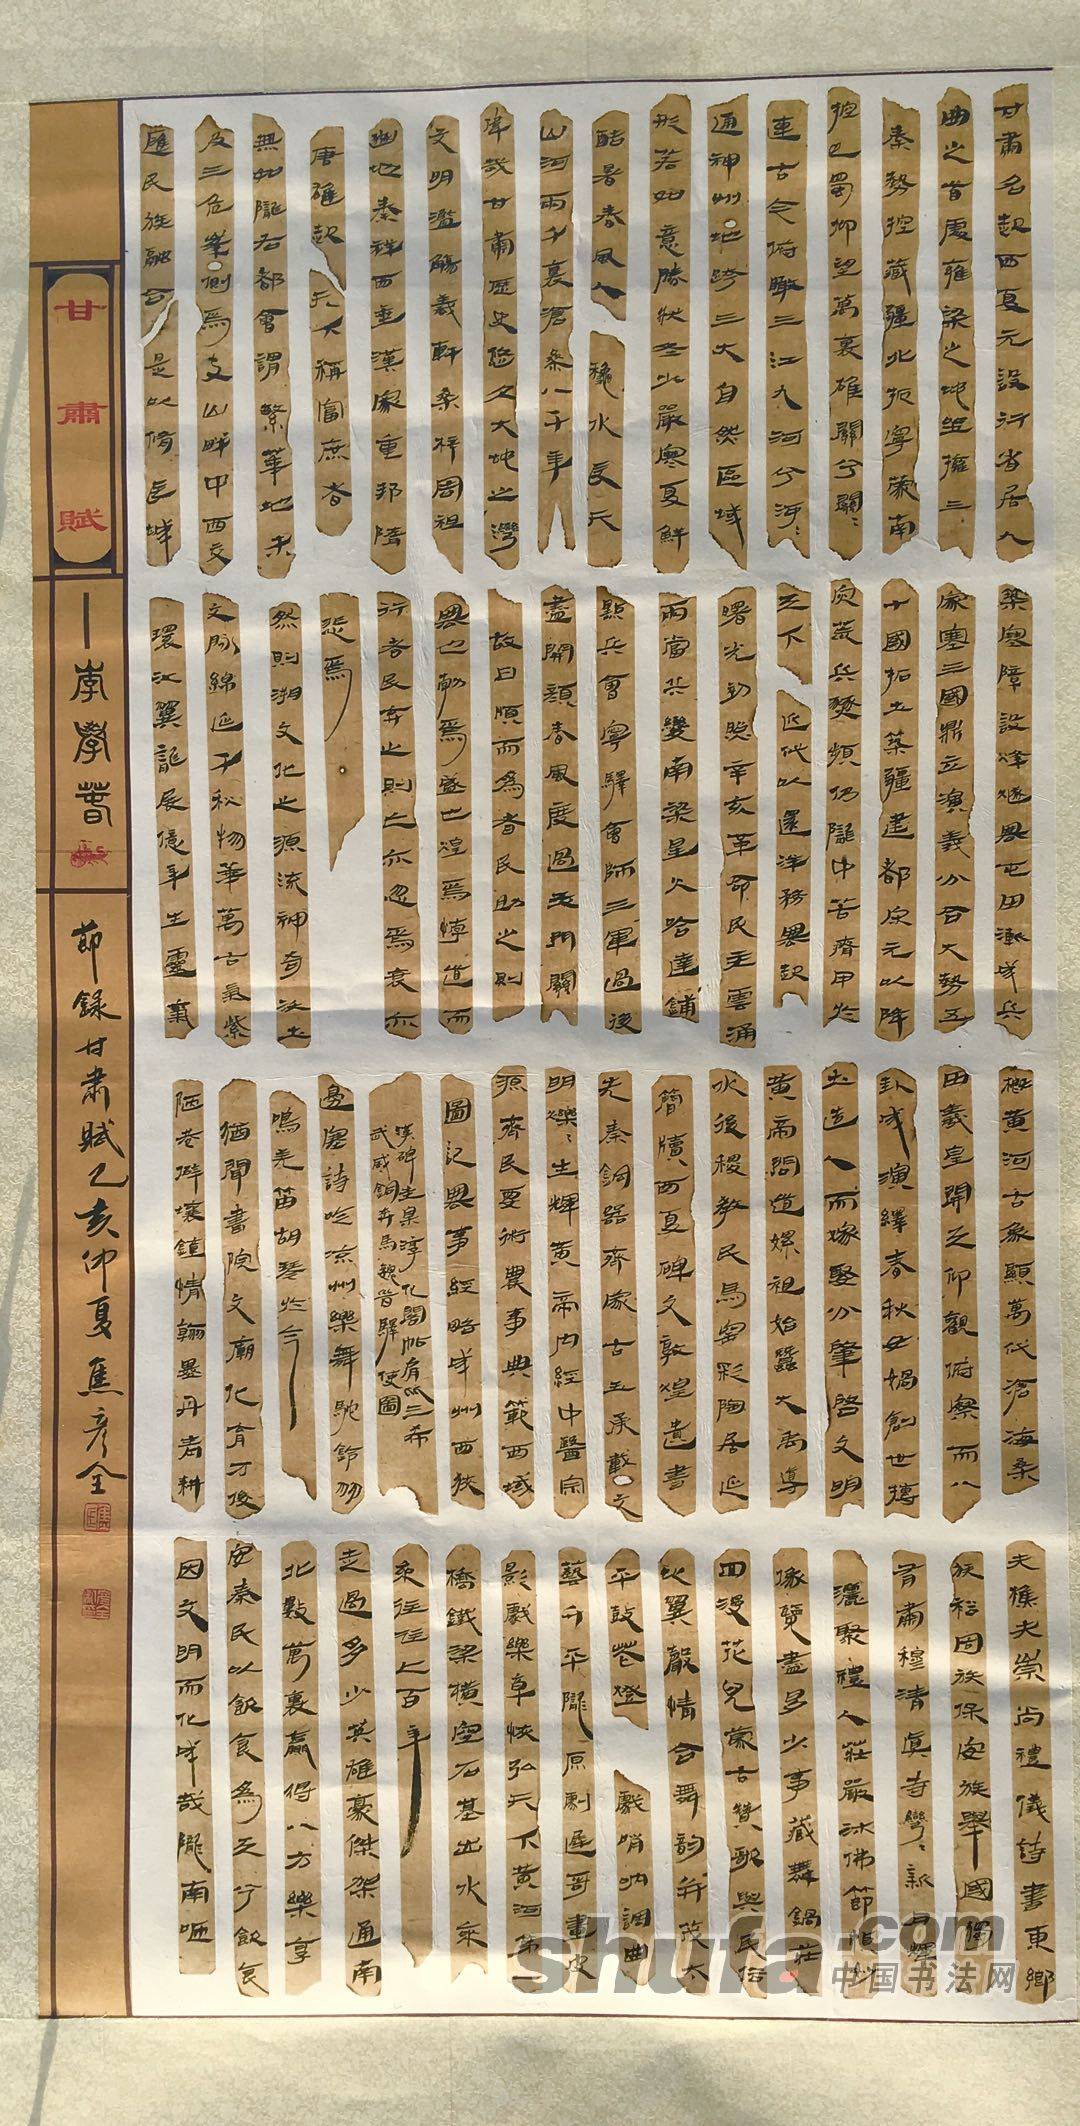 甘肅名起西夏元設行省居九
曲之首處雍梁之地坐擁三
秦勢控藏疆北扼寧蒙南
控巴蜀仰望萬裏雄關兮關〻
連古今俯瞰三江九河兮河〻
通神州地跨三大自然區域
形若如意勝狀冬少嚴寒夏鮮
酷暑春風人 穐水長天
山河兩千裏滄桑八千年
偉哉甘肅歷史悠久大地之灣
文明濫觴羲軒桑梓周祖
幽地秦祥西垂漢家重邦隋
唐雄起天下稱富庶者
無如隴右都會謂繁華地未
及三危峯側焉支山畔中西交
匯民族融合是以脩長城
築塞障設烽燧興屯田漸成兵
家塞三國鼎立演義分合大勢五
十國拓土築疆建都宋元以降
庾荒兵燹頻仍隴中苦瘠甲於
天下 近代以還洋務興起
曙光初照辛亥革命民主雲涌
兩當兵變南梁星火哈達鋪
點兵會寧驛會師三軍過後
盡開顏春風度過玉門關
故曰順而為者民助之則
興也勃焉盛世煌焉悖道而
行者民弃之則亡亦忽焉衰亦
悲焉
然則溯文化之源流神奇沃土
文脈綿延千秋物華萬古氣紫
環江翼龍展億年生靈氣
概黃河古象顯萬代滄海桑
田羲皇開天仰觀俯察而八
卦成演繹春秋女媧創世摶
土造人而嫁娶分肇啓文明
黃帝問道嫘祖始蠶大禹導
水後稷教民馬窑彩陶居延
簡牘西夏碑文敦煌遺書
先秦銅器齊家古玉承載文
明爍〻生輝黃帝內經中醫宗
源齊民要術農事典範西域
圖記興事經略成州西狹
漢碑圭臬淳化閣帖肩比三希
武威銅奔馬魏晉驛使圖
邊塞詩吟涼州樂舞駝鈴切
鳴羌笛胡琴於今
猶聞書院文廟化育才俊
陋巷僻壤鎮情翰墨丹青耕
夫樵夫崇尚禮儀詩書東鄉
族裕固族保安族舉國獨
有肅穆清真寺彎〻新月輝
灑聚禮人莊嚴冰佛節
緣覽盡多少事藏舞鍋莊
四漫花兒蒙古贊歌與民俗
比翼嚴情合舞韵并茂太
平鼓荒燈 戲哨吶調曲
藝千平隴原劇崖哥畫皮
影戲樂阜恢弘天下黃河第一
橋鐵梁橫空石基出水來
來往往上百年
走過多少英雄豪傑架通南
北數萬裏贏得八方樂享
安秦民以飲食為天兮飲食
因文明而化成哉隴南咂
甘肅賦
一李學春
節錄甘肅賦乙亥仲夏焦彥全
shufa.com
中国书法网